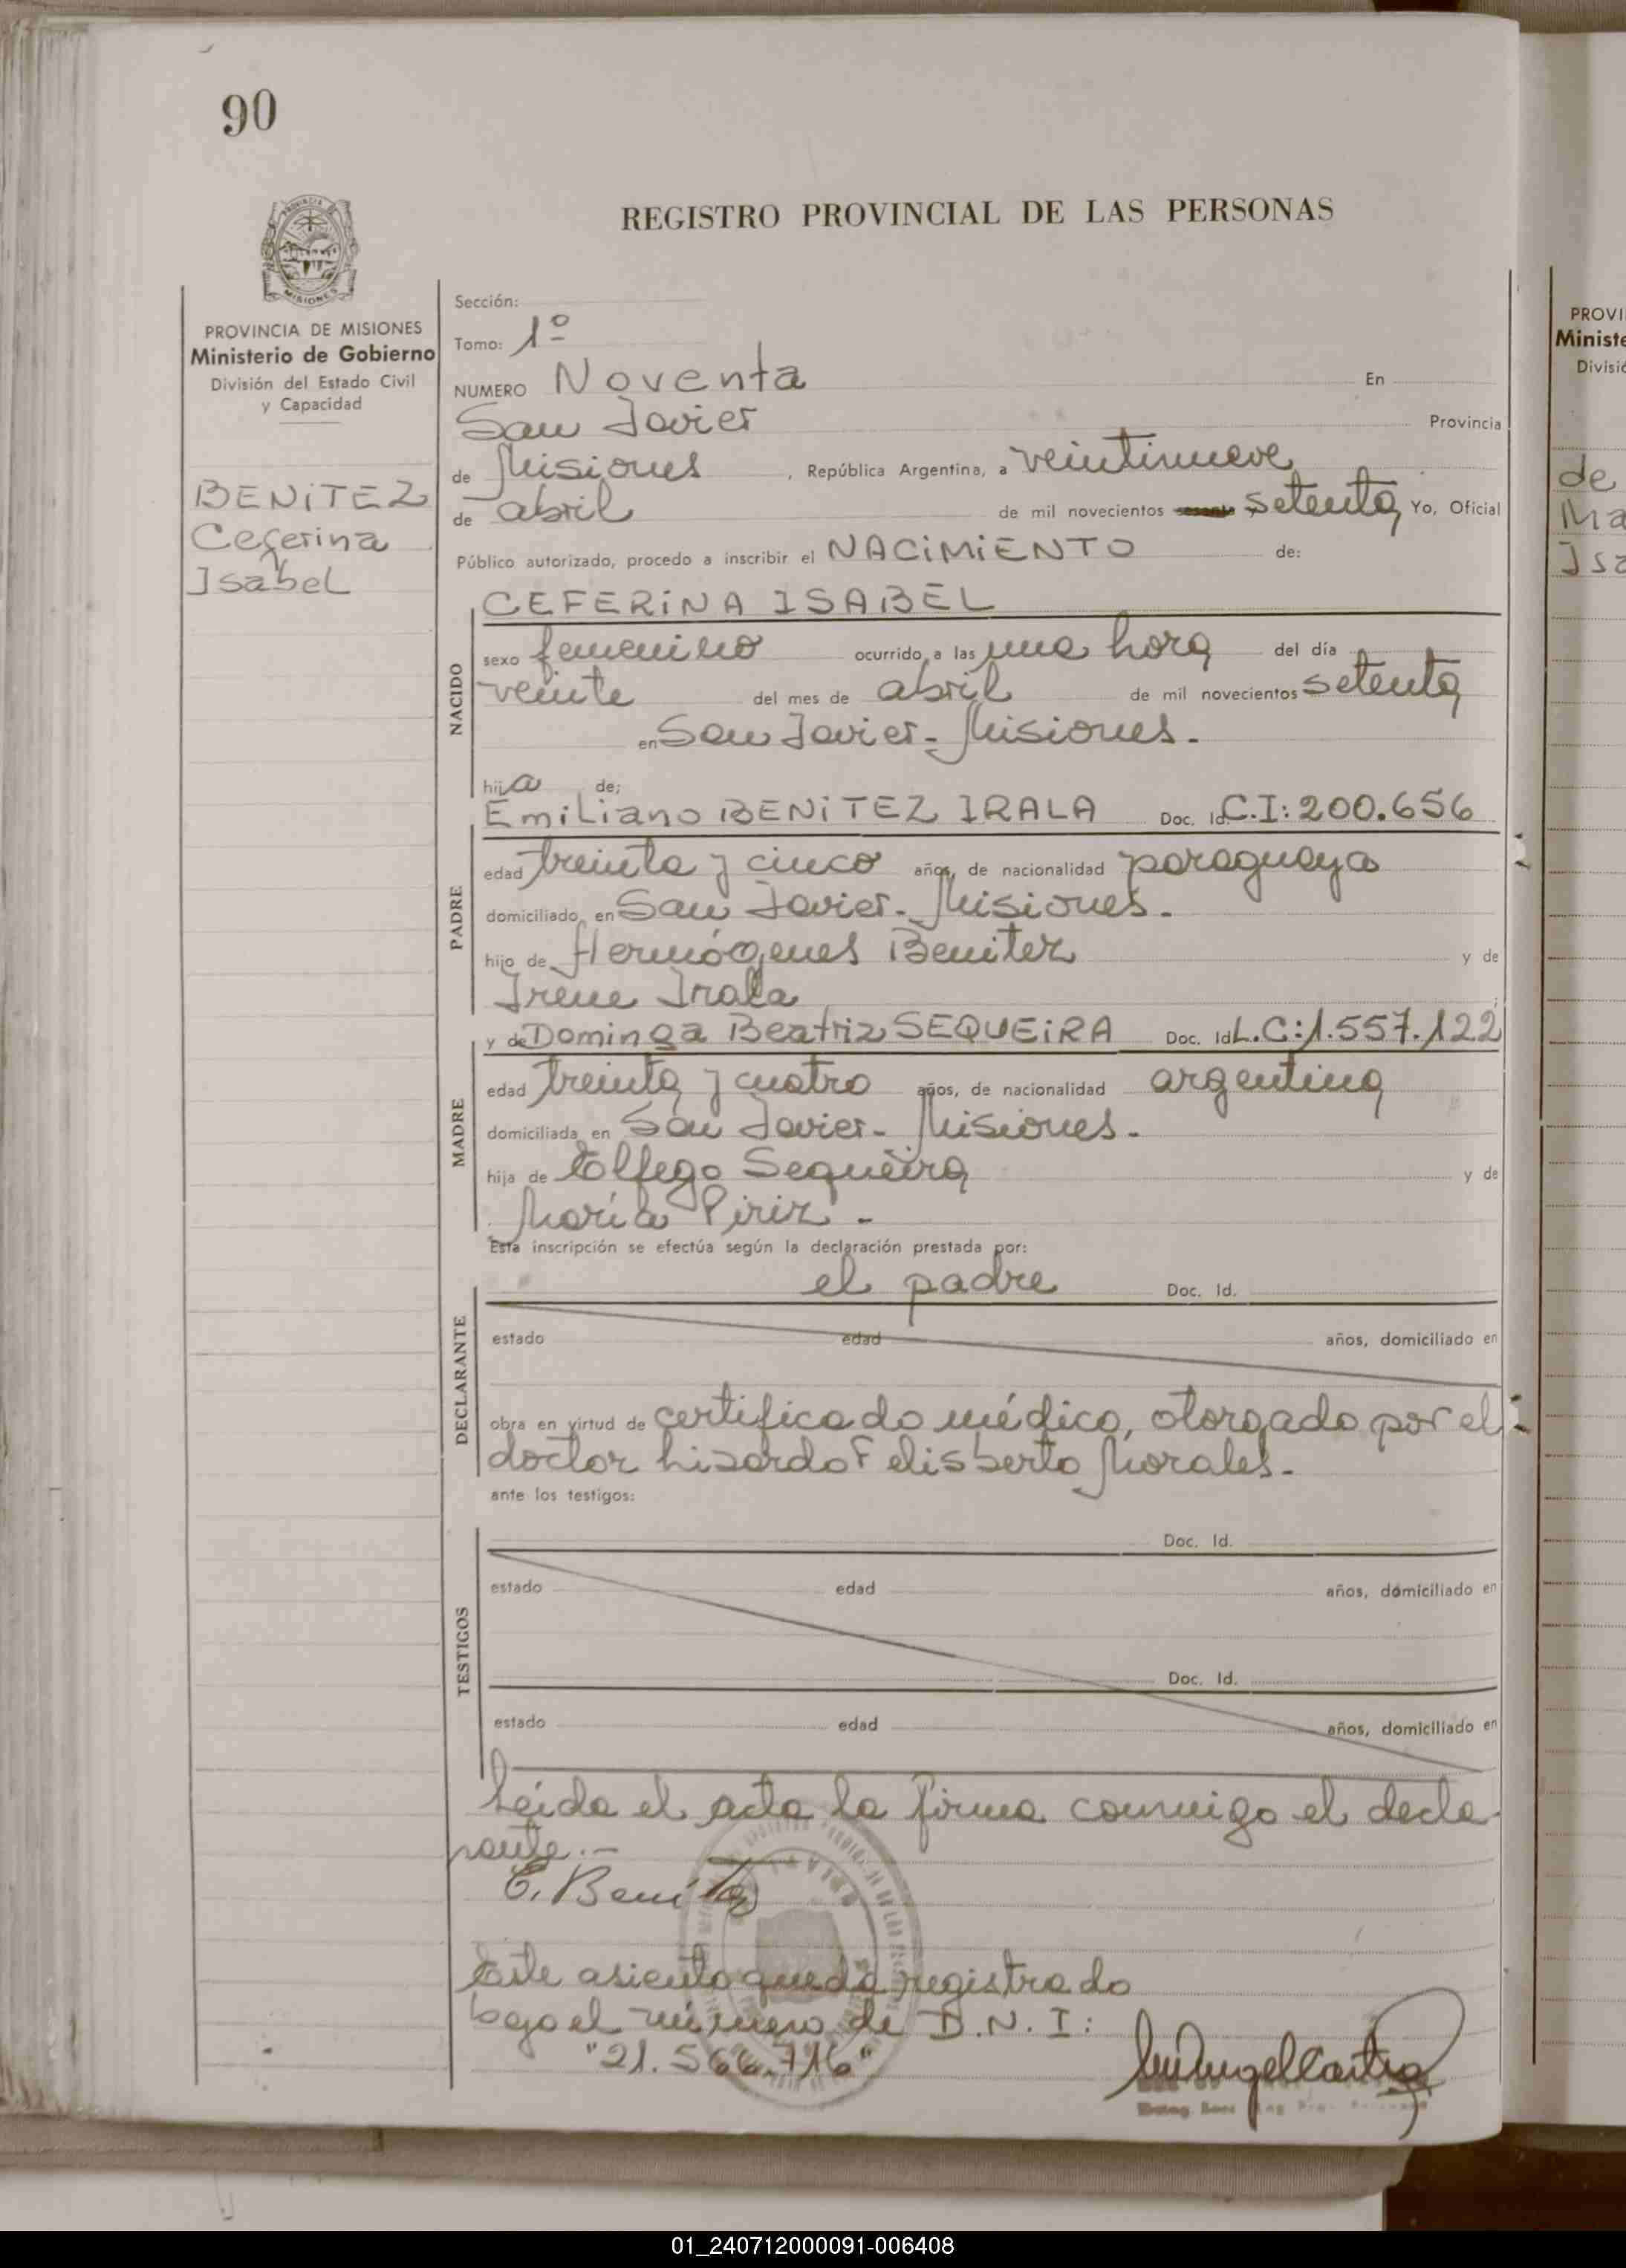 90
REGISTRO PROVINCIAL DE LAS PERSONAS
MISIONES
PROVINCIA DE MISIONES
Ministerio de Gobierno
División del Estado Civil
y Capacidad
BENITEZ
Ceferina
Isabel
Sección:
Tomo: 1º
NUMERO Noventa En
San Javier Provincia
de Misiones, República Argentina, a veintinueve
de abril de mil novecientos setenta Yo, Oficial
Público autorizado, procedo a inscribir el NACIMIENTO de:
CEFERINA ISABEL
NACIDO
sexo femenino ocurrido a las una hora del día
veinte del mes de abril de mil novecientos setenta
en San Javier - Misiones.
hija de;
PADRE
Emiliano BENITEZ IRALA Doc. Id. C.I: 200.656
edad treinta y cinco años, de nacionalidad paraguaya
domiciliado en San Javier - Misiones.
hijo de Hermógenes Benitez y de
Irene Irala
MADRE
y de Dominga Beatriz SEQUEIRA Doc. Id L.C: 1.557.122
edad treinta y cuatro años, de nacionalidad argentina
domiciliada en San Javier - Misiones.
hija de Elfego Sequeira y de
María Piriz. -
Esta inscripción se efectúa según la declaración prestada por:
DECLARANTE
el padre Doc. Id.
estado edad años, domiciliado en
obra en virtud de certificado médico, otorgado por el
doctor Lisardo Felisberto Morales.
ante los testigos:
TESTIGOS
Doc. Id.
estado edad años, domiciliado en
Doc. Id.
estado edad años, domiciliado en
Leída el acta la firma conmigo el decla-
rante.-
E. Benítez
Este asiento queda registrado
bajo el número de D.N.I:
"21.566.716"
PROVI
Ministe
Divisió
de
Ma
Isa
01_240712000091-006408